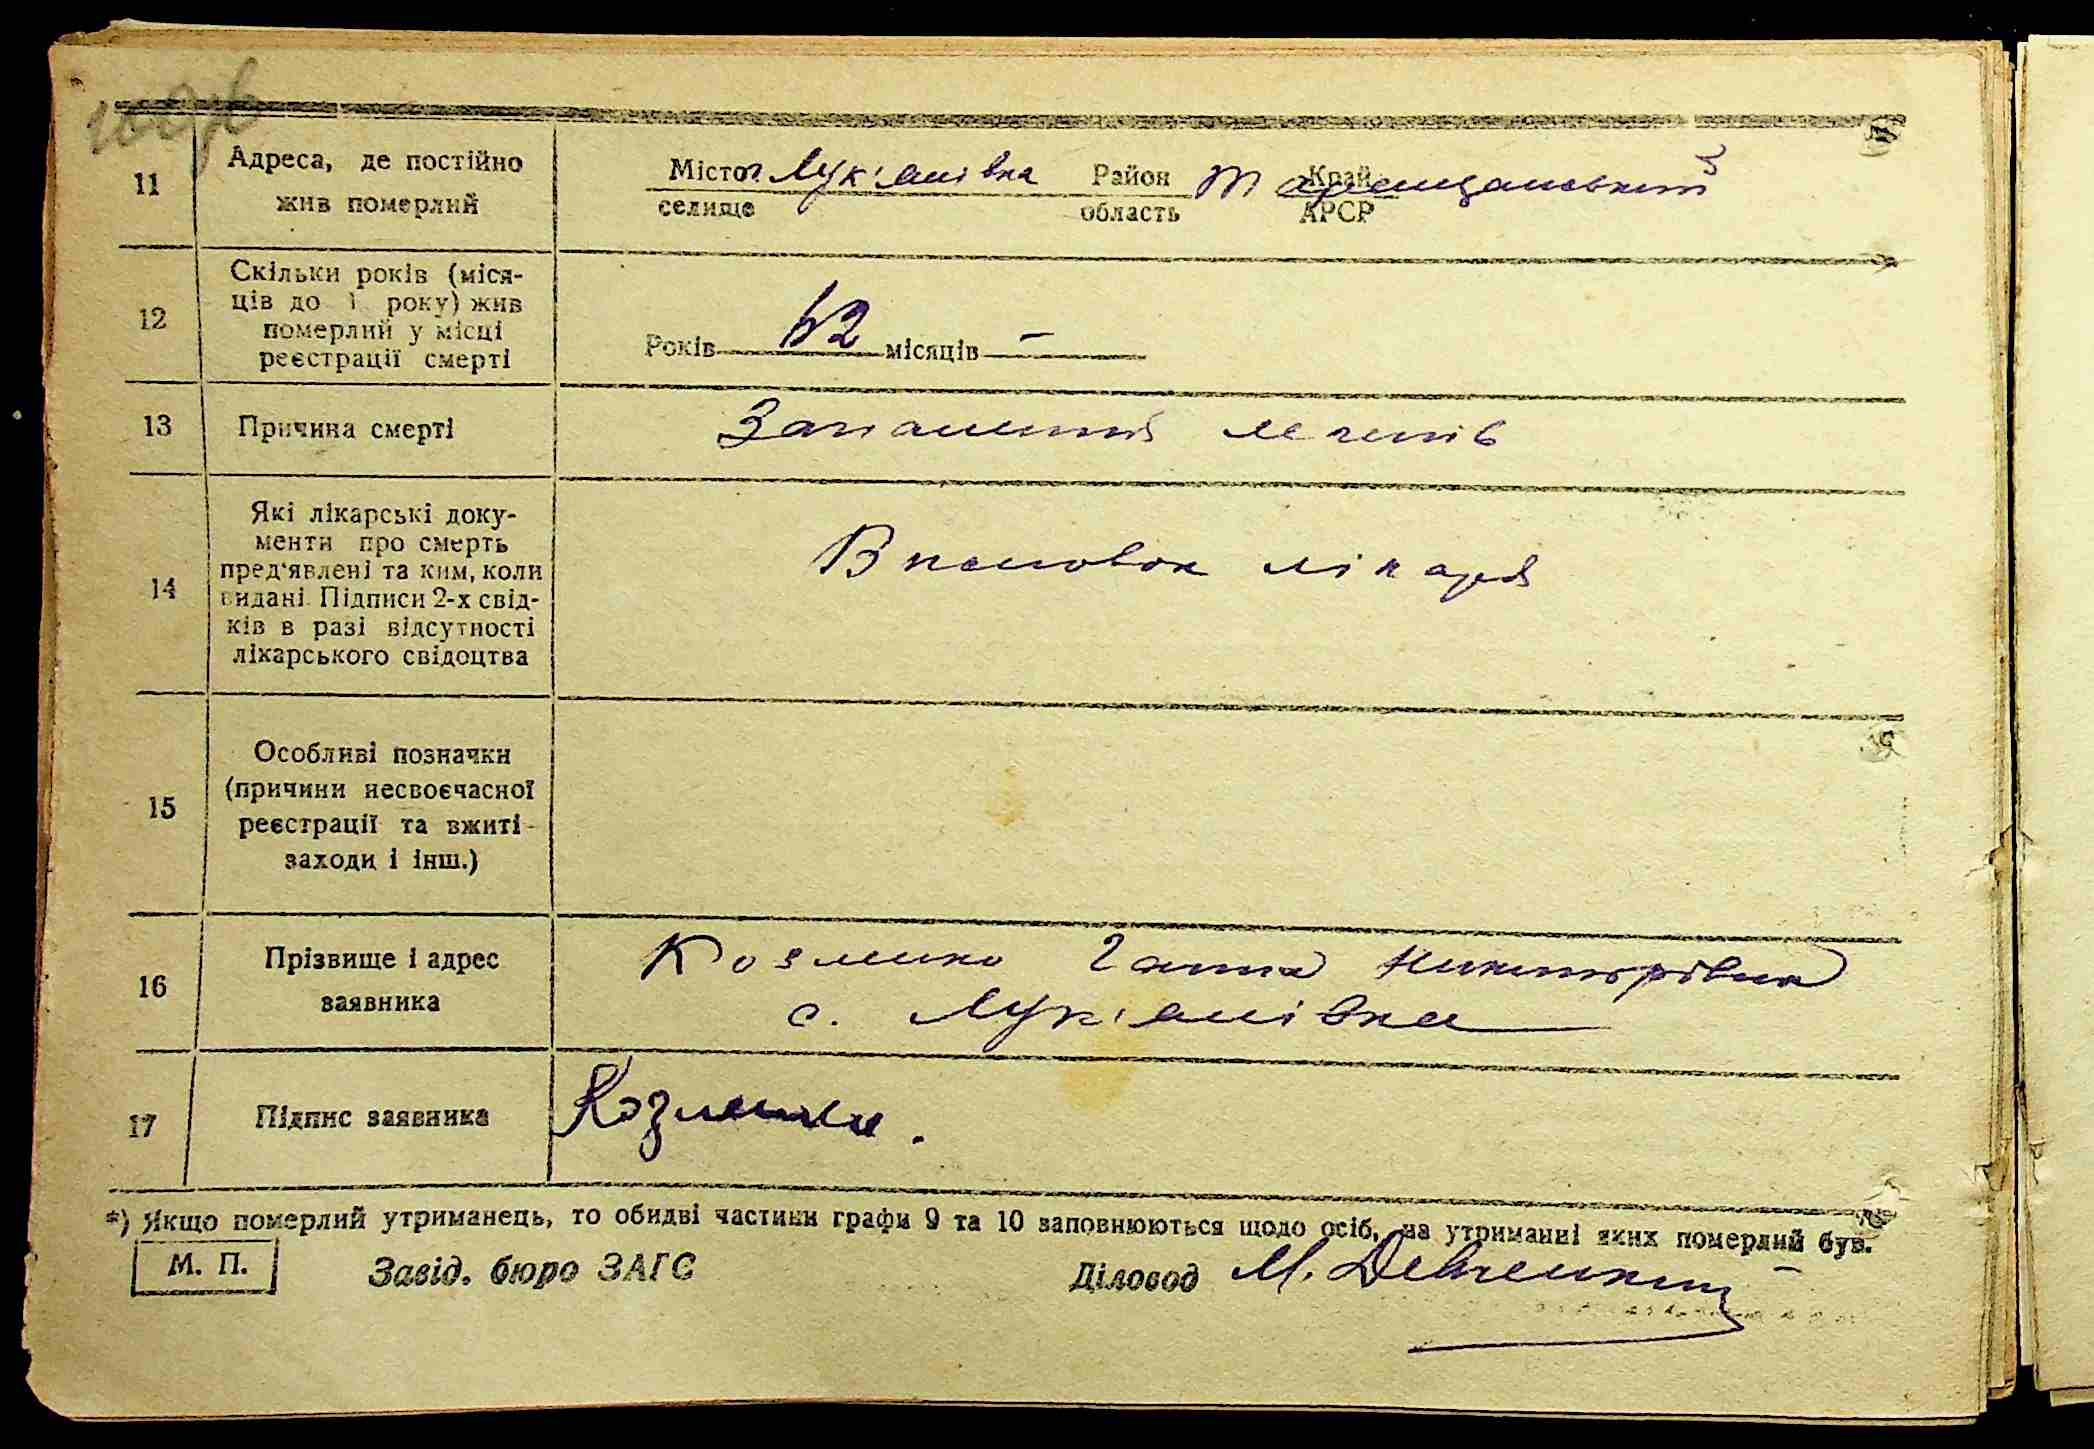 11
Адреса, де постійно
жив померлий
Місто Лук'янівка Район Таращанський Край
селище область АРСР
12
Скільки років (міся-
ців до 1 року) жив
померлий у місці
реєстрації смерті
Років 62 місяців —
13
Причина смерті
Запалення легенів
14
Які лікарські доку-
менти про смерть
пред'явлені та ким, коли
видані. Підписи 2-х свід-
ків в разі відсутності
лікарського свідоцтва
Висновок лікаря
15
Особливі позначки
(причини несвоєчасної
реєстрації та вжиті
заходи і інш.)
16
Прізвище і адрес
заявника
Козленко Ганна Никифорівна
с. Лук'янівка
17
Підпис заявника
Козленко.
*) Якщо померлий утриманець, то обидві частини графи 9 та 10 заповнюються щодо осіб, на утриманні яких померлий був.
М. П.
Завід. бюро ЗАГС
Діловод М.